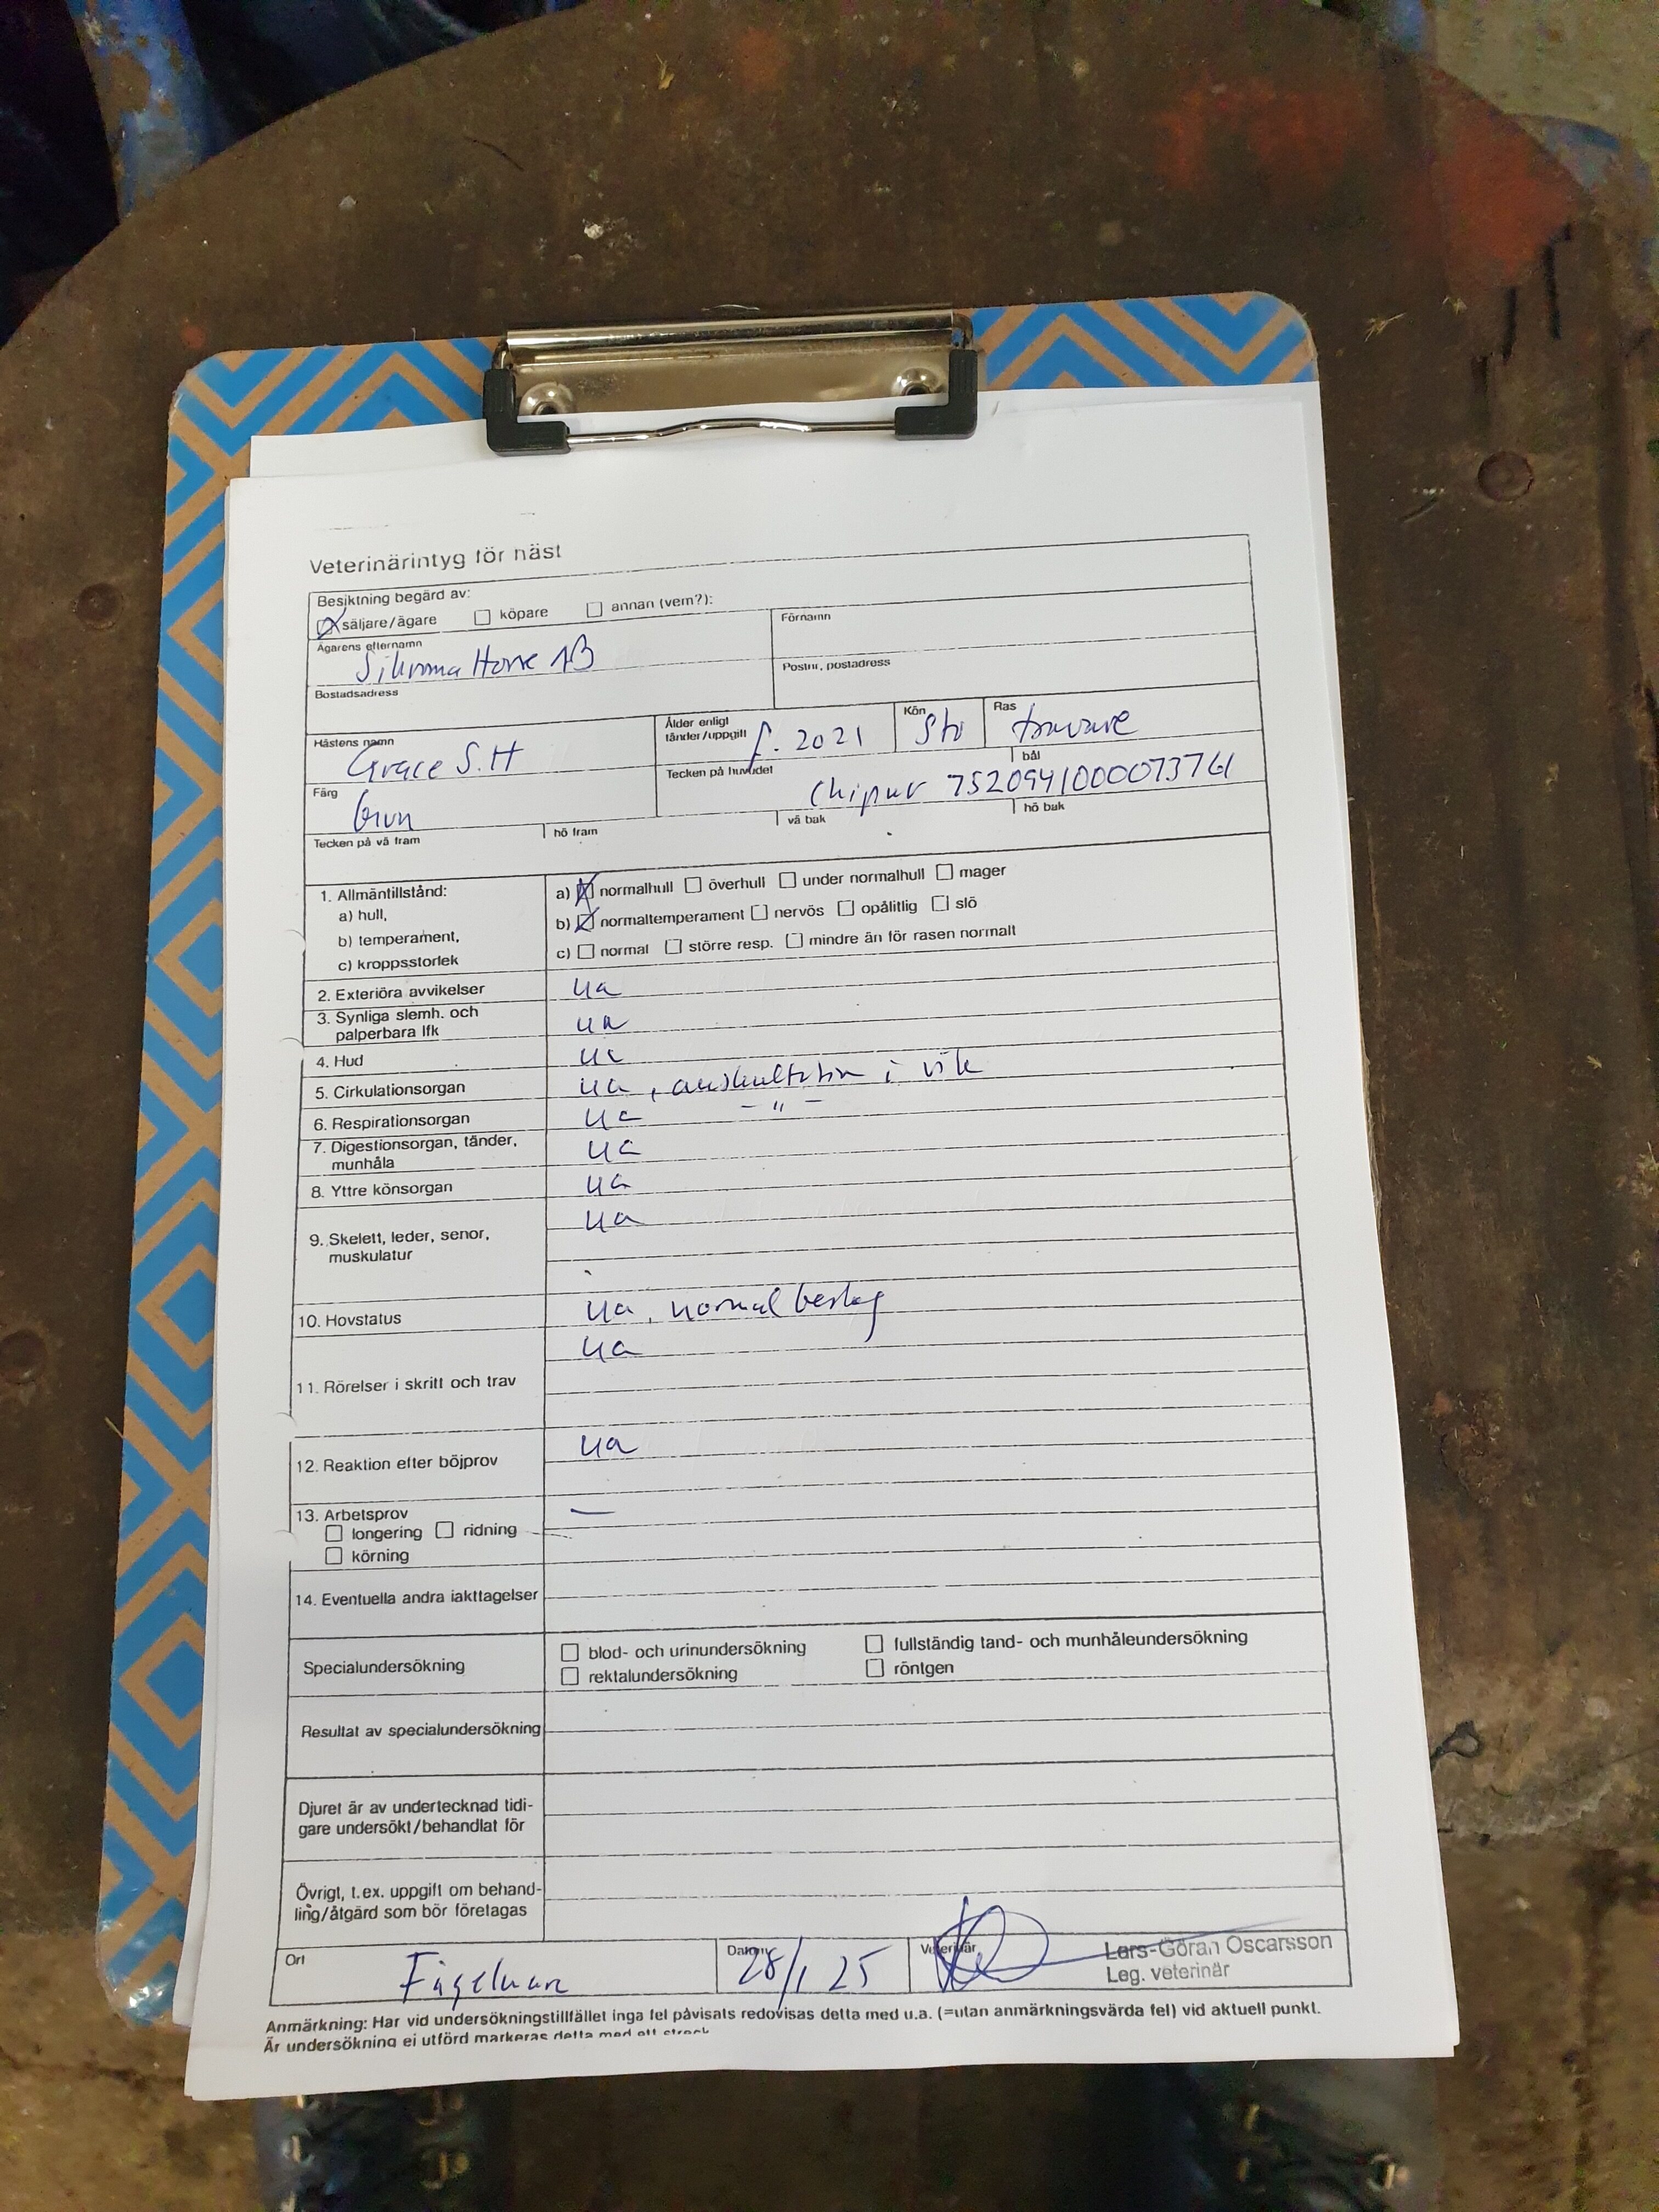 Veterinärintyg för häst
Besiktning begärd av:
säljare/ägare köpare annan (vem?):
Ägarens efternamn Förnamn
Horse AB
Bostadsadress Postnr, postadress
Hästens namn Ålder enligt tänder/uppgift Kön Ras
Grace S.H f. 2021 Sto travare
Färg Tecken på huvudet bål
brun Chipnr 7520941000073761
Tecken på vä fram hö fram vä bak hö bak
1. Allmäntillstånd:
a) hull,
b) temperament,
c) kroppsstorlek
a) normalhull överhull under normalhull mager
b) normaltemperament nervös opålitlig slö
c) normal större resp. mindre än för rasen normalt
2. Exteriöra avvikelser ua
3. Synliga slemh. och
palperbara lfk ua
4. Hud ua
5. Cirkulationsorgan ua, auskultation i vila
6. Respirationsorgan ua - " -
7. Digestionsorgan, tänder,
munhåla ua
8. Yttre könsorgan ua
9. Skelett, leder, senor,
muskulatur ua
10. Hovstatus ua, normal beslag
11. Rörelser i skritt och trav ua
12. Reaktion efter böjprov ua
13. Arbetsprov —
longering ridning
körning
14. Eventuella andra iakttagelser
Specialundersökning
blod- och urinundersökning fullständig tand- och munhåleundersökning
rektalundersökning röntgen
Resultat av specialundersökning
Djuret är av undertecknad tidi-
gare undersökt/behandlat för
Övrigt, t.ex. uppgift om behand-
ling/åtgärd som bör företagas
Ort Datum Veterinär
28/1 25 Lars-Göran Oscarsson
Leg. veterinär
Anmärkning: Har vid undersökningstillfället inga fel påvisats redovisas detta med u.a. (=utan anmärkningsvärda fel) vid aktuell punkt.
Är undersökning ej utförd markeras detta med ett streck